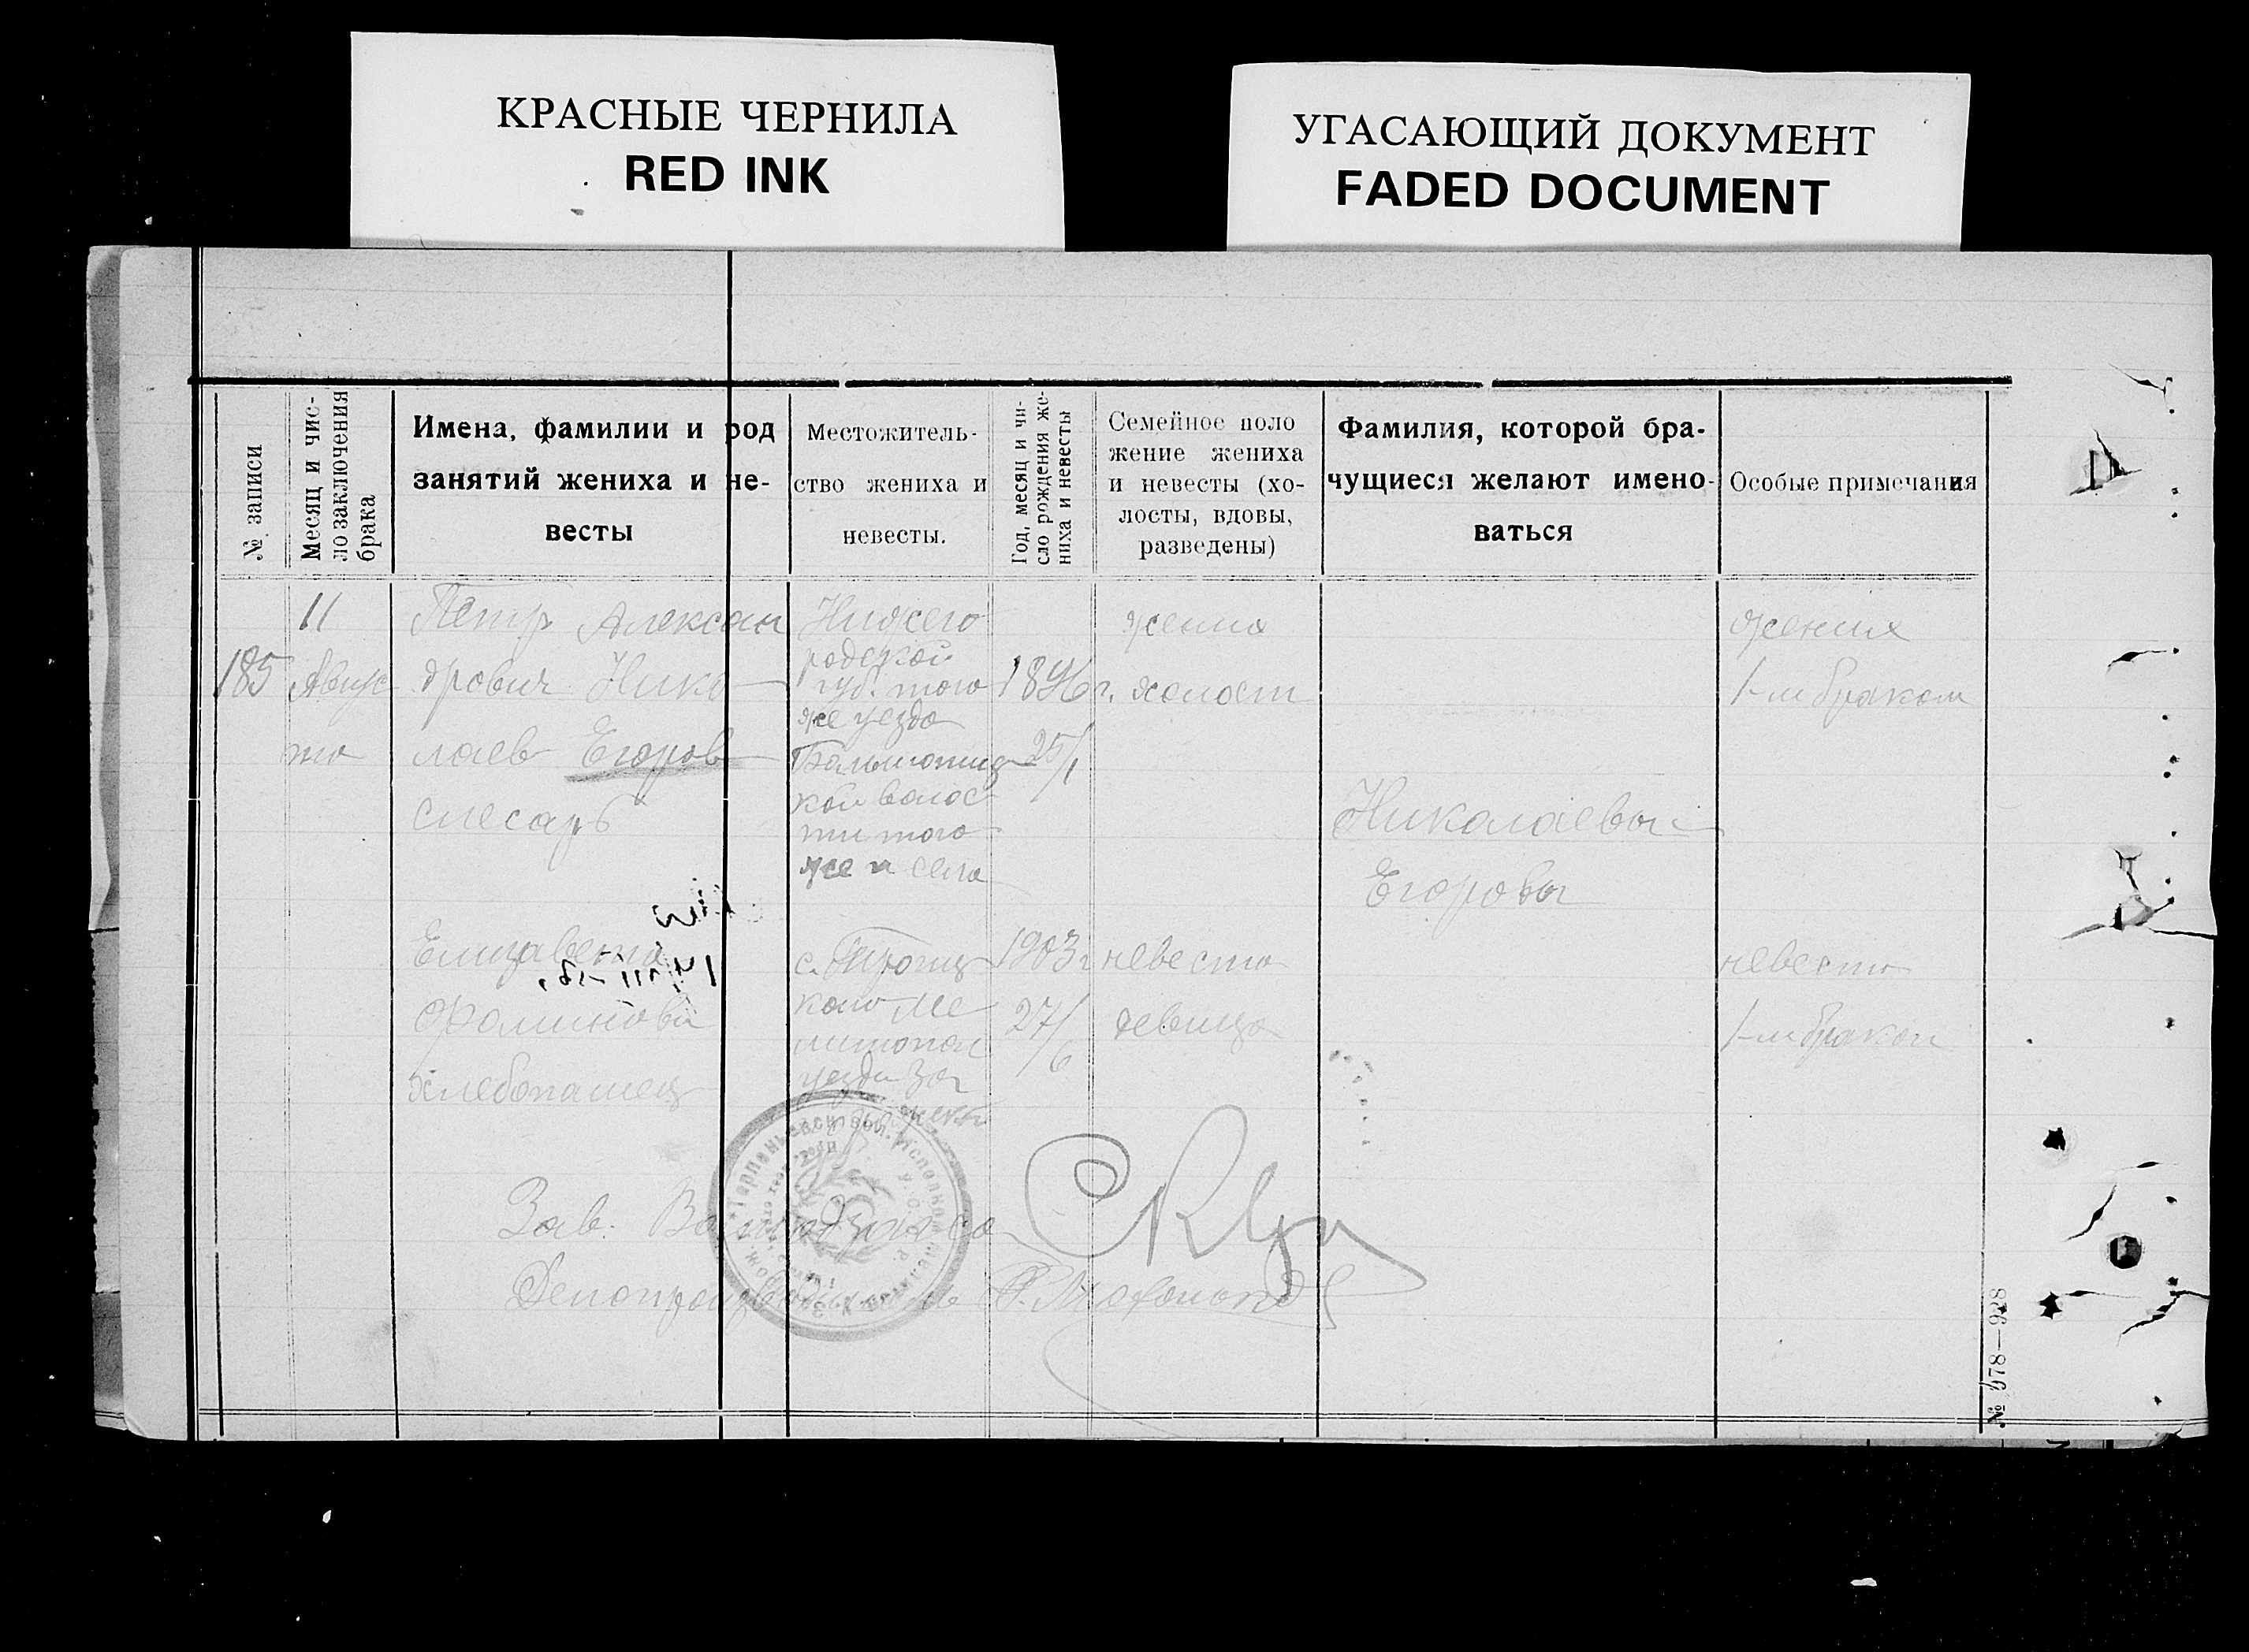 КРАСНЫЕ ЧЕРНИЛА
RED INK
УГАСАЮЩИЙ ДОКУМЕНТ
FADED DOCUMENT
№ записи
Месяц и чис-
ло заключения
брака
Имена, фамилии и род
занятий жениха и не-
весты
Местожитель-
ство жениха и
невесты.
Год, месяц и чи-
сло рождения же-
ниха и невесты
Семейное поло
жение жениха
и невесты (хо-
лосты, вдовы,
разведены)
Фамилия, которой бра-
чущиеся желают имено-
ваться
Особые примечания
185
11
Авгус
та
Петр Алексан
дрович Нико
лаев Егоров
слесарь
Нижего
родской
губ. того
же уезда
кой волос
ти того
же и села
1896 г.
25/1
жених
холост
Николаевы
Егоровы
жених
1-м браком
Елизавета
Фоминова
хлебопашец
с.
Ме
литопол
уезда За
1903 г
27/6
невеста
девица
невеста
1-м браком
Зав.
Делопроизводитель
№ 078—928